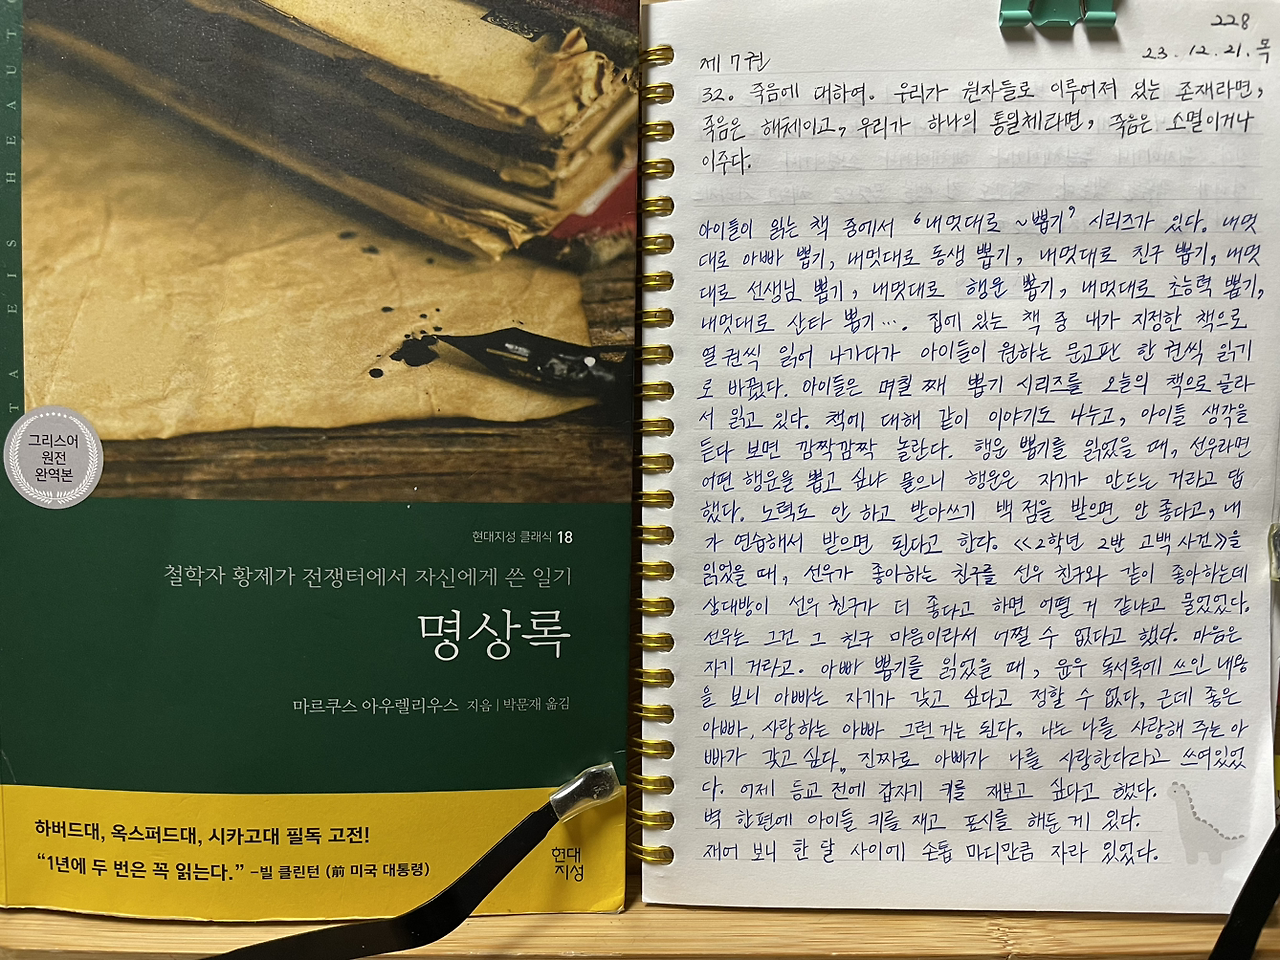 TAEISHEAUT
그리스어
원전
완역본
현대지성 클래식 18
철학자 황제가 전쟁터에서 자신에게 쓴 일기
명상록
마르쿠스 아우렐리우스 지음 | 박문재 옮김
하버드대, 옥스퍼드대, 시카고대 필독 고전!
“1년에 두 번은 꼭 읽는다.” –빌 클린턴 (前 미국 대통령)
현대
지성
228
23. 12. 21. 목
제 7권
32. 죽음에 대하여. 우리가 원자들로 이루어져 있는 존재라면,
죽음은 해체이고, 우리가 하나의 통일체라면, 죽음은 소멸이거나
이주다.
아이들이 읽는 책 중에서 ‘내멋대로 ~뽑기’ 시리즈가 있다. 내멋
대로 아빠 뽑기, 내멋대로 동생 뽑기, 내멋대로 친구 뽑기, 내멋
대로 선생님 뽑기, 내멋대로 행운 뽑기, 내멋대로 초능력 뽑기,
내멋대로 산타 뽑기…. 집에 있는 책 중 내가 지정한 책으로
열 권씩 읽어 나가다가 아이들이 원하는 문고판 한 권씩 읽기
로 바꿨다. 아이들은 며칠 째 뽑기 시리즈를 오늘의 책으로 골라
서 읽고 있다. 책에 대해 같이 이야기도 나누고, 아이들 생각을
듣다 보면 깜짝깜짝 놀란다. 행운 뽑기를 읽었을 때, 선우라면
어떤 행운을 뽑고 싶냐 물으니 행운은 자기가 만드는 거라고 답
했다. 노력도 안 하고 받아쓰기 백 점을 받으면 안 좋다고, 내
가 연습해서 받으면 된다고 한다. 《2학년 2반 고백 사건》을
읽었을 때, 선우가 좋아하는 친구를 선우 친구와 같이 좋아하는데
상대방이 선우 친구가 더 좋다고 하면 어떨 거 같냐고 물었었다.
선우는 그건 그 친구 마음이라서 어쩔 수 없다고 했다. 마음은
자기 거라고. 아빠 뽑기를 읽었을 때, 윤우 독서록에 쓰인 내용
을 보니 아빠는 자기가 갖고 싶다고 정할 수 없다, 근데 좋은
아빠, 사랑하는 아빠 그런 거는 된다, 나는 나를 사랑해 주는 아
빠가 갖고 싶다, 진짜로 아빠가 나를 사랑한다라고 쓰여있었
다. 어제 등교 전에 갑자기 키를 재보고 싶다고 했다.
벽 한편에 아이들 키를 재고 표시를 해둔 게 있다.
재어 보니 한 달 사이에 손톱 마디만큼 자라 있었다.